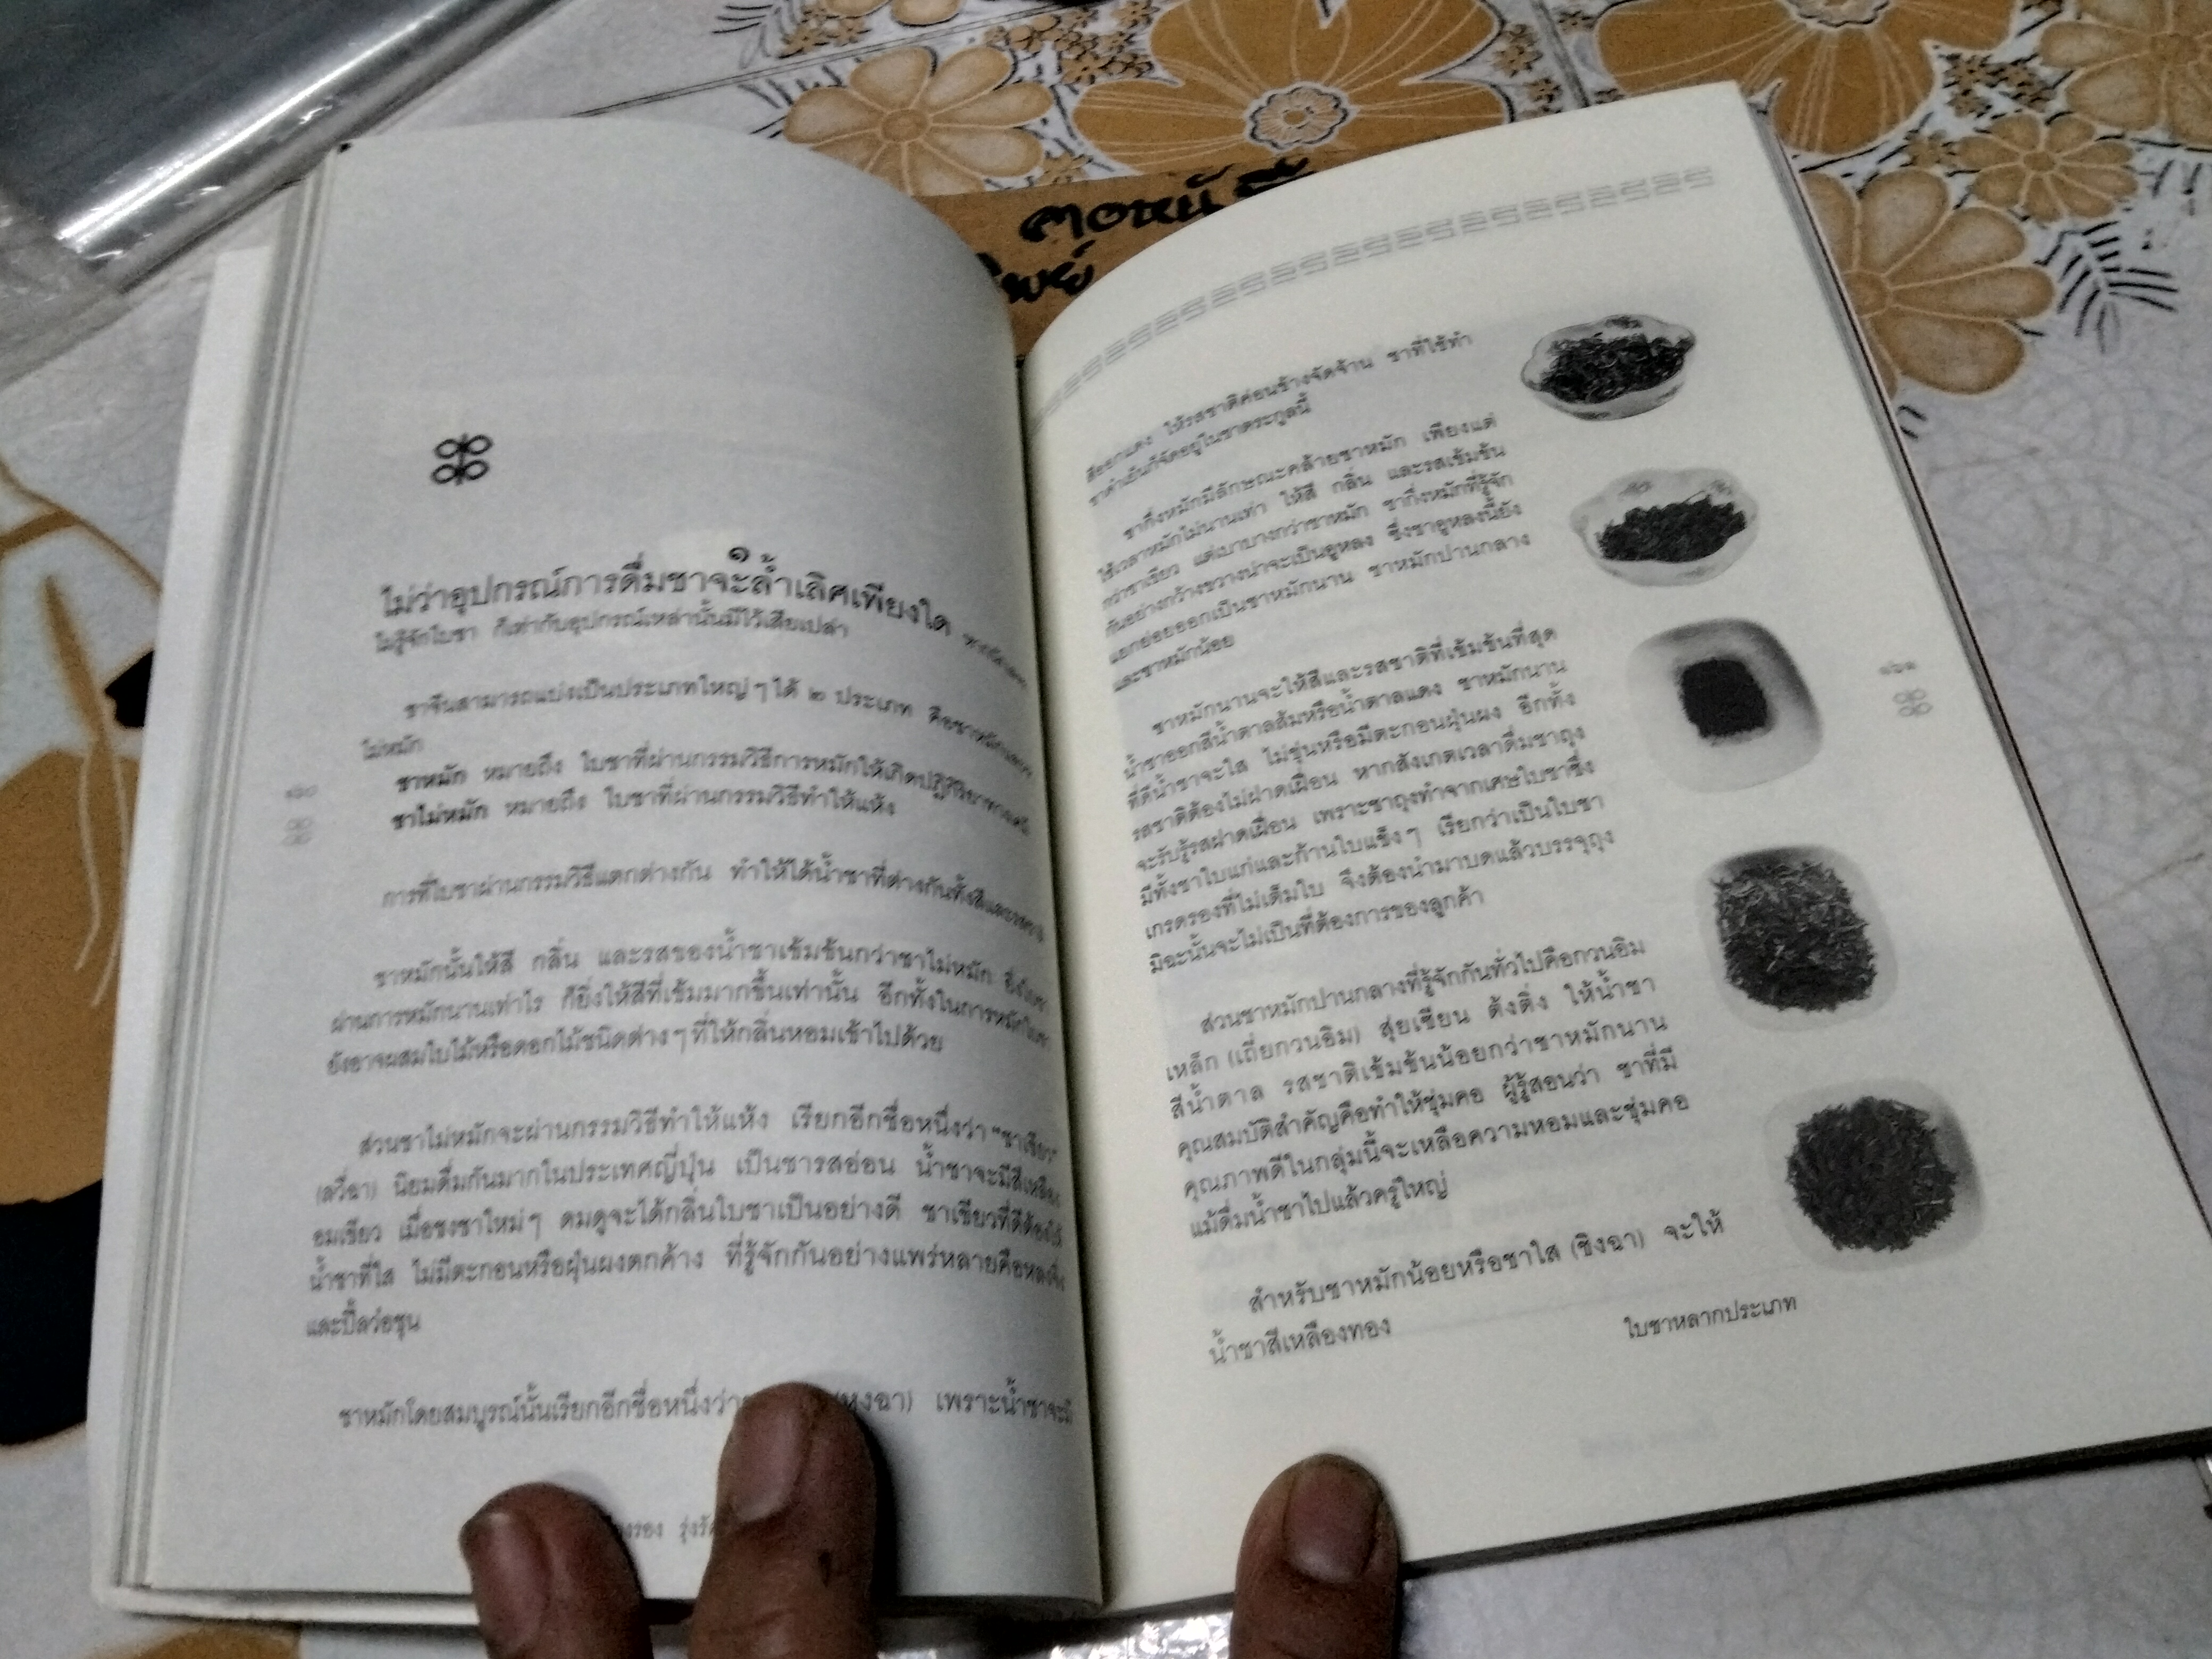 ตอหน้
ทิพย์
๑
ไม่ว่าอุปกรณ์การดื่มชาจะล้ำเลิศเพียงใด หากดื่มชา
ไม่รู้จักใบชา ก็เท่ากับอุปกรณ์เหล่านั้นมีไว้เสียเปล่า
ชาจีนสามารถแบ่งเป็นประเภทใหญ่ๆ ได้ ๒ ประเภท คือชาหมักและชา
ไม่หมัก
ชาหมัก หมายถึง ใบชาที่ผ่านกรรมวิธีการหมักให้เกิดปฏิกิริยาทางเคมี
ชาไม่หมัก หมายถึง ใบชาที่ผ่านกรรมวิธีทำให้แห้ง
การที่ใบชาผ่านกรรมวิธีแตกต่างกัน ทำให้ได้น้ำชาที่ต่างกันทั้งสีและรสชาติ
ชาหมักนั้นให้สี กลิ่น และรสของน้ำชาเข้มข้นกว่าชาไม่หมัก ยิ่งใบชา
ผ่านการหมักนานเท่าไร ก็ยิ่งให้สีที่เข้มมากขึ้นเท่านั้น อีกทั้งในการหมักใบชา
ยังอาจผสมใบไม้หรือดอกไม้ชนิดต่างๆ ที่ให้กลิ่นหอมเข้าไปด้วย
ส่วนชาไม่หมักจะผ่านกรรมวิธีทำให้แห้ง เรียกอีกชื่อหนึ่งว่า "ชาเขียว"
(ลวี่ฉา) นิยมดื่มกันมากในประเทศญี่ปุ่น เป็นชารสอ่อน น้ำชาจะมีสีเหลือง
อมเขียว เมื่อชงชาใหม่ๆ ดมดูจะได้กลิ่นใบชาเป็นอย่างดี ชาเขียวที่ดีต้องให้
น้ำชาที่ใส ไม่มีตะกอนหรือฝุ่นผงตกค้าง ที่รู้จักกันอย่างแพร่หลายคือหลงจิ่ง
และปี้ลว่อชุน
ชาหมักโดยสมบูรณ์นั้นเรียกอีกชื่อหนึ่งว่า (หงฉา) เพราะน้ำชาจะมี
เรืองรอง รุ่งรัศ
สีออกแดง ให้รสชาติค่อนข้างจัดจ้าน ชาที่ใช้ทำ
ชาดำเย็นก็จัดอยู่ในชาตระกูลนี้
ชากึ่งหมักมีลักษณะคล้ายชาหมัก เพียงแต่
ใช้เวลาหมักไม่นานเท่า ให้สี กลิ่น และรสเข้มข้น
กว่าชาเขียว แต่เบาบางกว่าชาหมัก ชากึ่งหมักที่รู้จัก
กันอย่างกว้างขวางน่าจะเป็นอูหลง ซึ่งชาอูหลงนี้ยัง
แยกย่อยออกเป็นชาหมักนาน ชาหมักปานกลาง
และชาหมักน้อย
ชาหมักนานจะให้สีและรสชาติที่เข้มข้นที่สุด
น้ำชาออกสีน้ำตาลส้มหรือน้ำตาลแดง ชาหมักนาน
ที่ดีน้ำชาจะใส ไม่ขุ่นหรือมีตะกอนฝุ่นผง อีกทั้ง
รสชาติต้องไม่ฝาดเฝื่อน หากสังเกตเวลาดื่มชาถุง
จะรับรู้รสฝาดเฝื่อน เพราะชาถุงทำจากเศษใบชาซึ่ง
มีทั้งชาใบแก่และก้านใบแข็งๆ เรียกว่าเป็นใบชา
เกรดรองที่ไม่เต็มใบ จึงต้องนำมาบดแล้วบรรจุถุง
มิฉะนั้นจะไม่เป็นที่ต้องการของลูกค้า
ส่วนชาหมักปานกลางที่รู้จักกันทั่วไปคือกวนอิม
เหล็ก (เถี่ยกวนอิม) สุ่ยเซียน ต้งติ่ง ให้น้ำชา
สีน้ำตาล รสชาติเข้มข้นน้อยกว่าชาหมักนาน
คุณสมบัติสำคัญคือทำให้ชุ่มคอ ผู้รู้สอนว่า ชาที่มี
คุณภาพดีในกลุ่มนี้จะเหลือความหอมและชุ่มคอ
แม้ดื่มน้ำชาไปแล้วครู่ใหญ่
สำหรับชาหมักน้อยหรือชาใส (ชิงฉา) จะให้
น้ำชาสีเหลืองทอง
ใบชาหลากประเภท